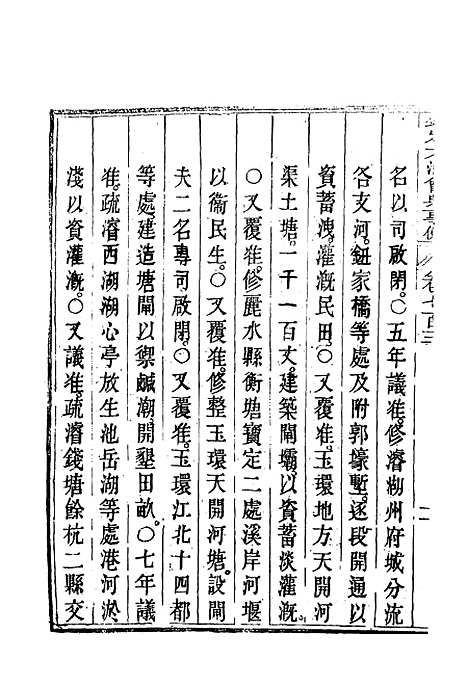 名以司啟閉。○五年議准。修濬湖州府城分流
各支河。鈕家橋等處及附郭壕塹。逐段開通以
資蓄洩。灌溉民田。○又覆准。玉環地方天開河
渠土塘。一千一百丈。建築閘壩。以資蓄淡灌溉。
○又覆准。修麗水縣衡塘寶定二處溪岸河堰
以衞民生。○又覆准。修整玉環天開河塘。設閘
夫二名專司啟閉。○又覆准。玉環江北十四都
等處。建造塘閘以禦鹹潮開墾田畝。○七年議
准。疏濬西湖湖心亭放生池岳湖等處港河淤
淺以資灌溉。○又議准。疏濬錢塘餘杭二縣交